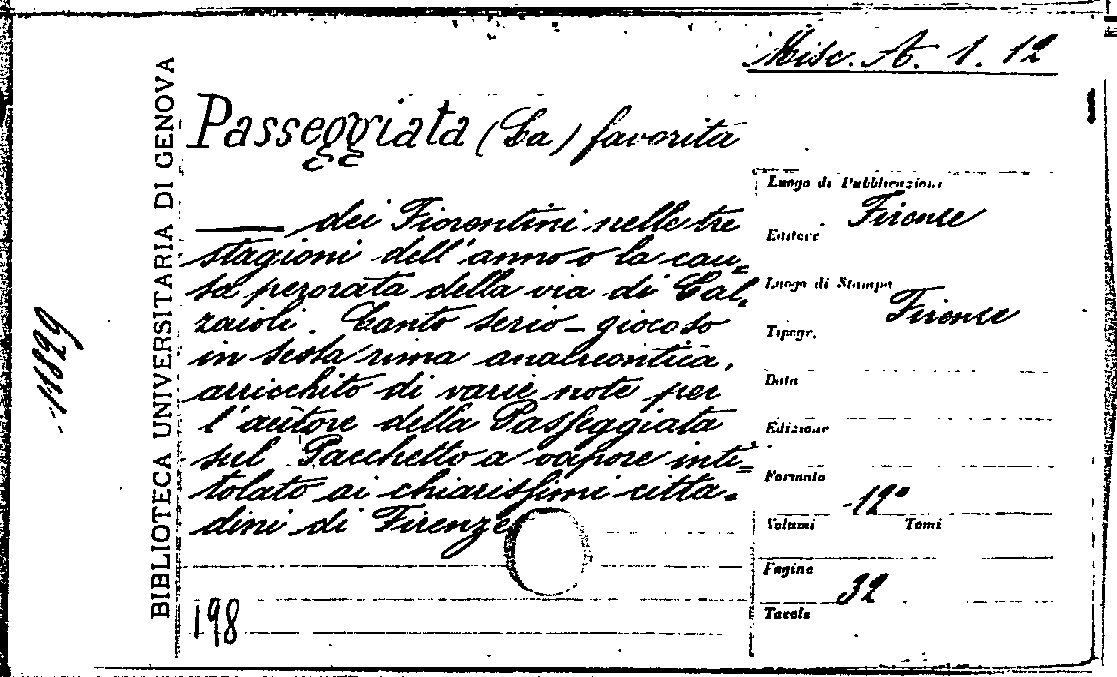 Misc. A. 1. 12
BIBLIOTECA UNIVERSITARIA DI GENOVA
11899
Passeggiata (La) favorita
—— dei Fiorentini nelle tre
stagioni dell'anno o la cau=
sa perorata della via di Cal,
zaioli. Canto serio-giocoso
in sesta rima anacreontica,
arricchito di varie note per
l'autore della Passeggiata
sul Pacchetto a vapore inti=
tolato ai chiarissimi citta=
dini di Firenze
198
Luogo di Pubblicazione
Firenze
Editore
Luogo di Stampa
Firenze
Tipogr.
Data
Edizione
Formato
12°
Volumi Tomi
Pagine
32
Tavole